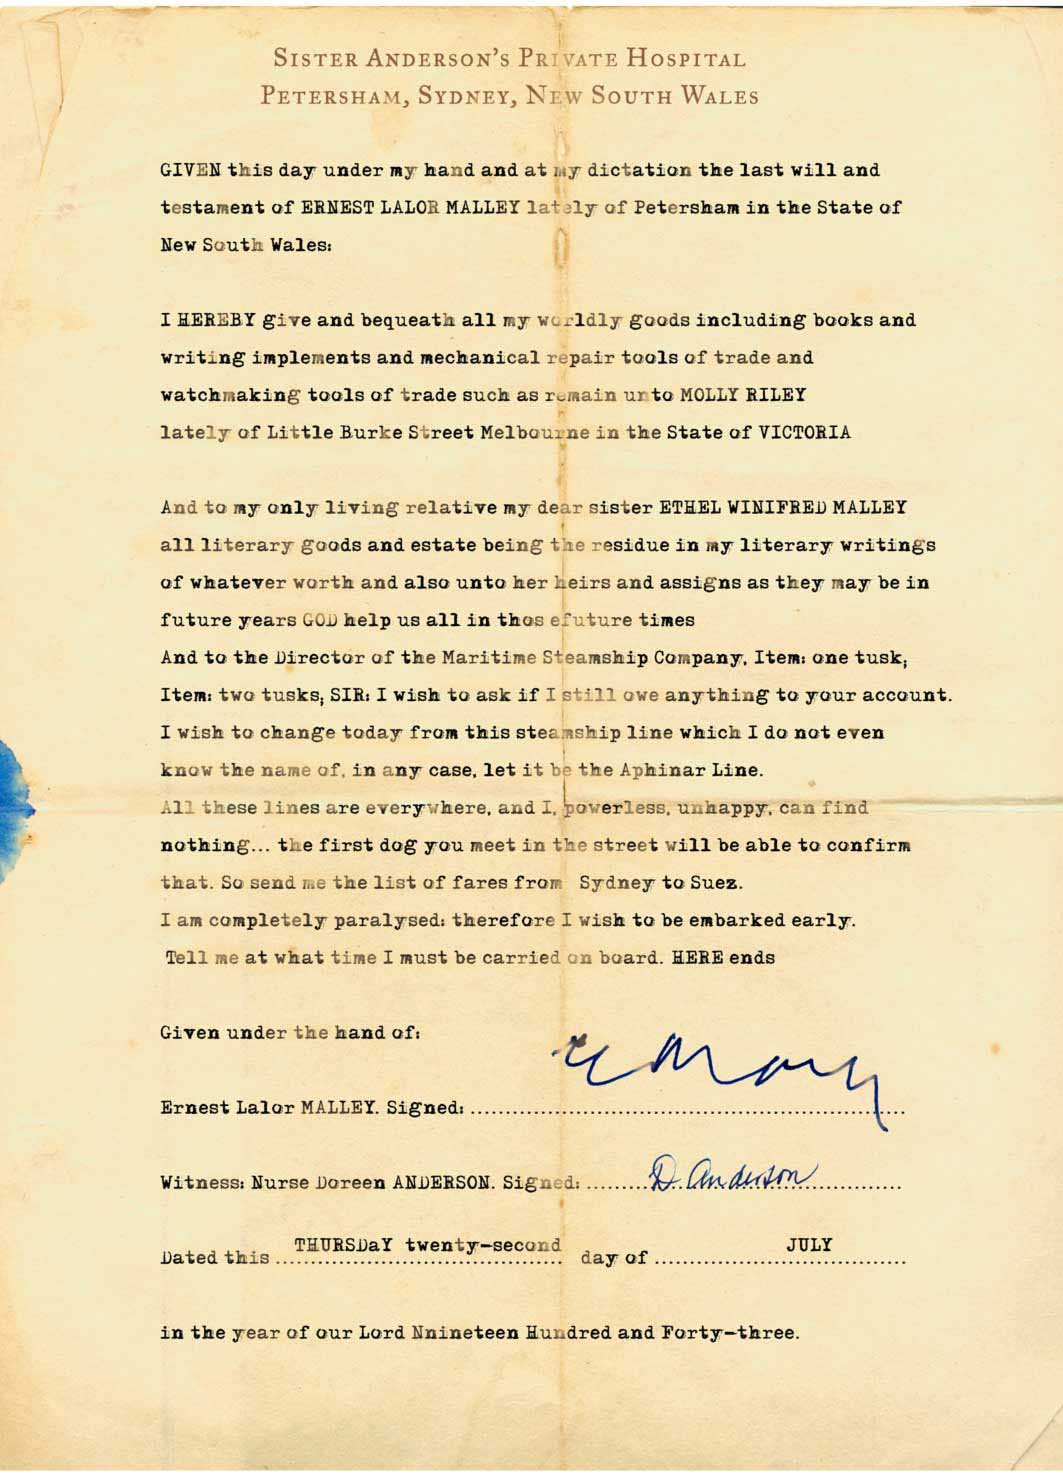 SISTER ANDERSON'S PRIVATE HOSPITAL
PETERSHAM, SYDNEY, NEW SOUTH WALES
GIVEN this day under my hand and at my dictation the last will and
testament of ERNEST LALOR MALLEY lately of Petersham in the State of
New South Wales:
I HEREBY give and bequeath all my worldly goods including books and
writing implements and mechanical repair tools of trade and
watchmaking tools of trade such as remain unto MOLLY RILEY
lately of Little Burke Street Melbourne in the State of VICTORIA
And to my only living relative my dear sister ETHEL WINIFRED MALLEY
all literary goods and estate being the residue in my literary writings
of whatever worth and also unto her heirs and assigns as they may be in
future years GOD help us all in thos efuture times
And to the Director of the Maritime Steamship Company, Item: one tusk;
Item: two tusks; SIR: I wish to ask if I still owe anything to your account.
I wish to change today from this steamship line which I do not even
know the name of, in any case, let it be the Aphinar Line.
All these lines are everywhere, and I, powerless, unhappy, can find
nothing... the first dog you meet in the street will be able to confirm
that. So send me the list of fares from Sydney to Suez.
I am completely paralysed: therefore I wish to be embarked early.
Tell me at what time I must be carried on board. HERE ends
Given under the hand of:
Ernest Lalor MALLEY. Signed: E Malley
Witness: Nurse Doreen ANDERSON. Signed: D. Anderson
Dated this THURSDaY twenty-second day of JULY
in the year of our Lord Nnineteen Hundred and Forty-three.